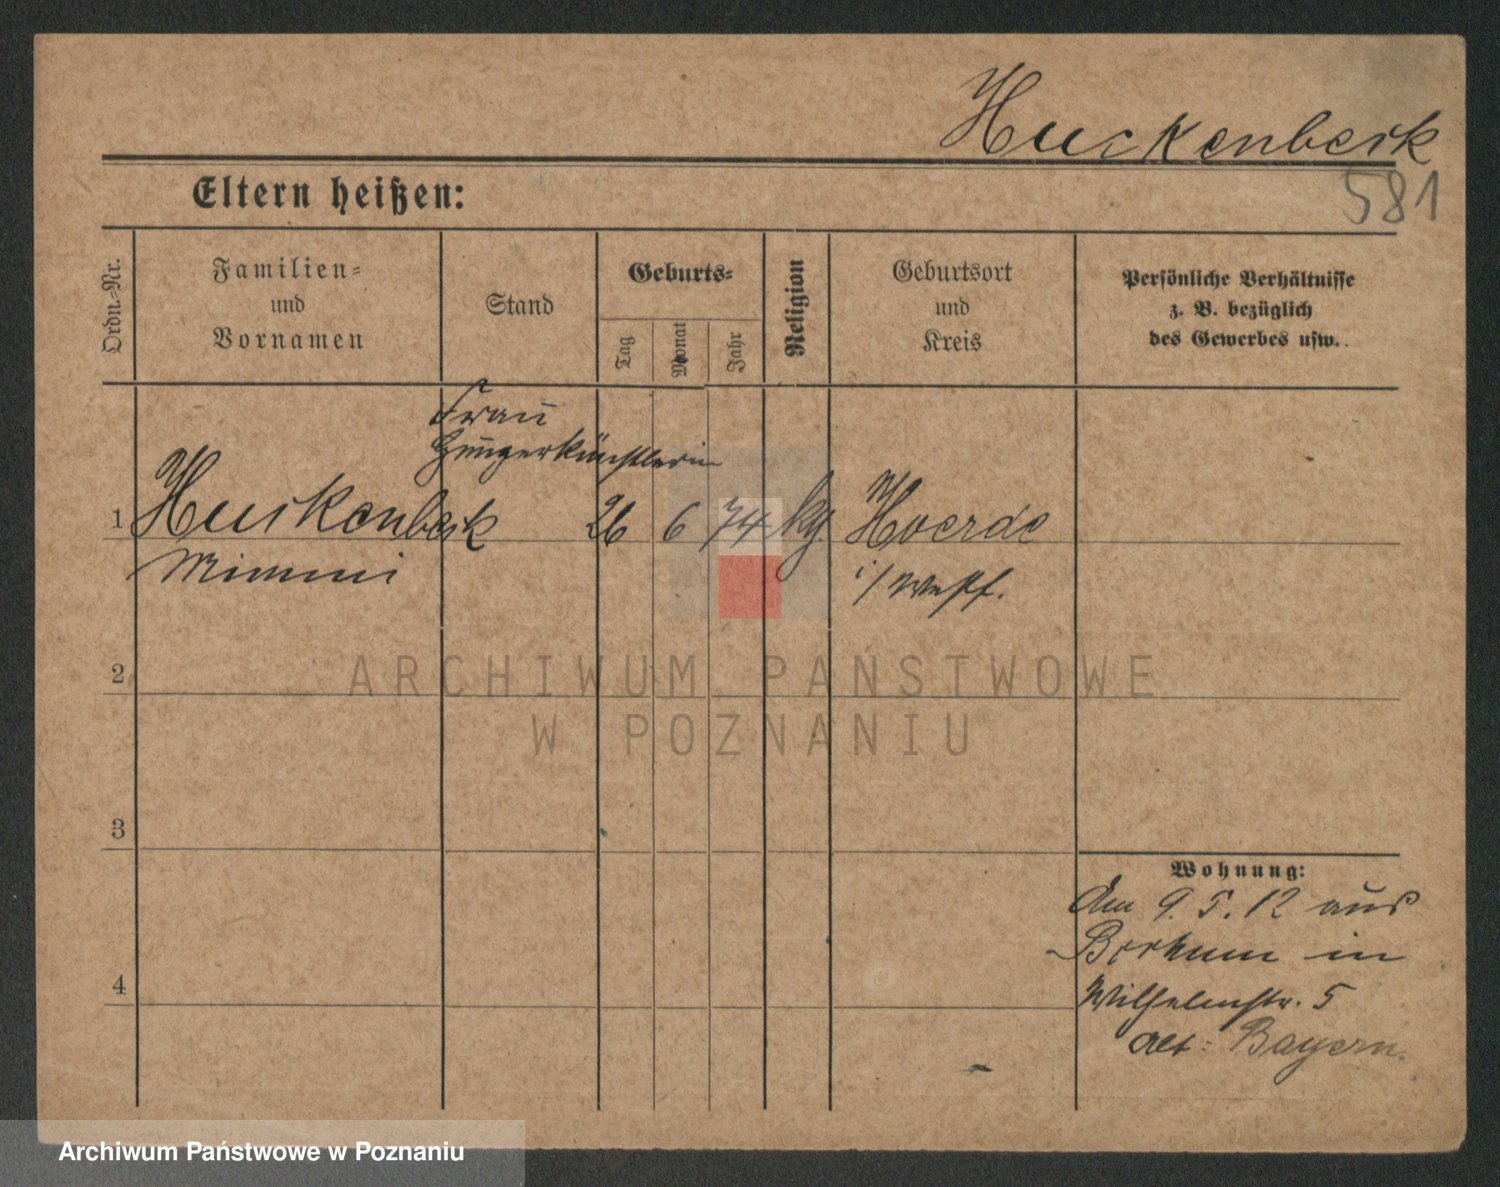 Huckenbeck
581
Eltern heißen:
Ordn.-Nr.
Familien-
und
Vornamen
Stand
Geburts-
Tag
Monat
Jahr
Religion
Geburtsort
und
Kreis
Persönliche Verhältnisse
z. B. bezüglich
des Gewerbes usw.
Frau
Hungerkünstlerin
1 Huckenbeck 26 6 74 kg. Hoerde
Mimmi i/Westf.
ARCHIWUM PAŃSTWOWE
W POZNANIU
2
3
4
Wohnung:
Am 9.5.12 aus
Borkum in
Wilhelmstr. 5
Bayern.
Archiwum Państwowe w Poznaniu